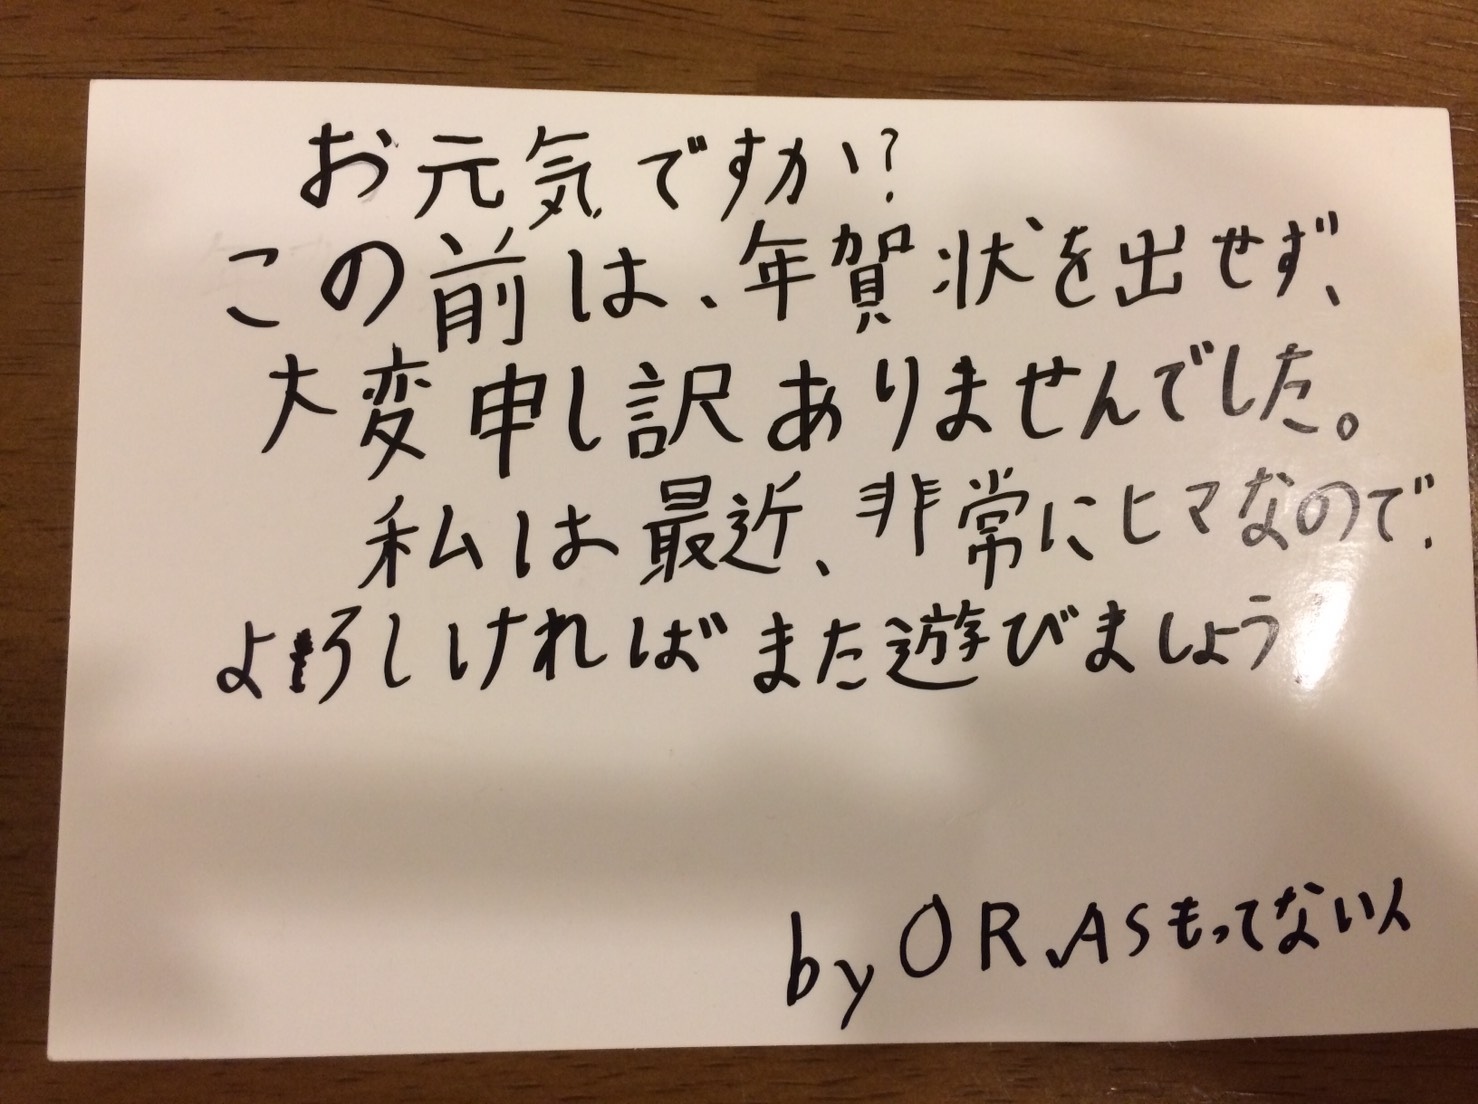 お元気ですか?
この前は、年賀状を出せず、
大変申し訳ありませんでした。
私は最近、非常にヒマなので、
よろしければまた遊びましょう!
by ORASもってない人